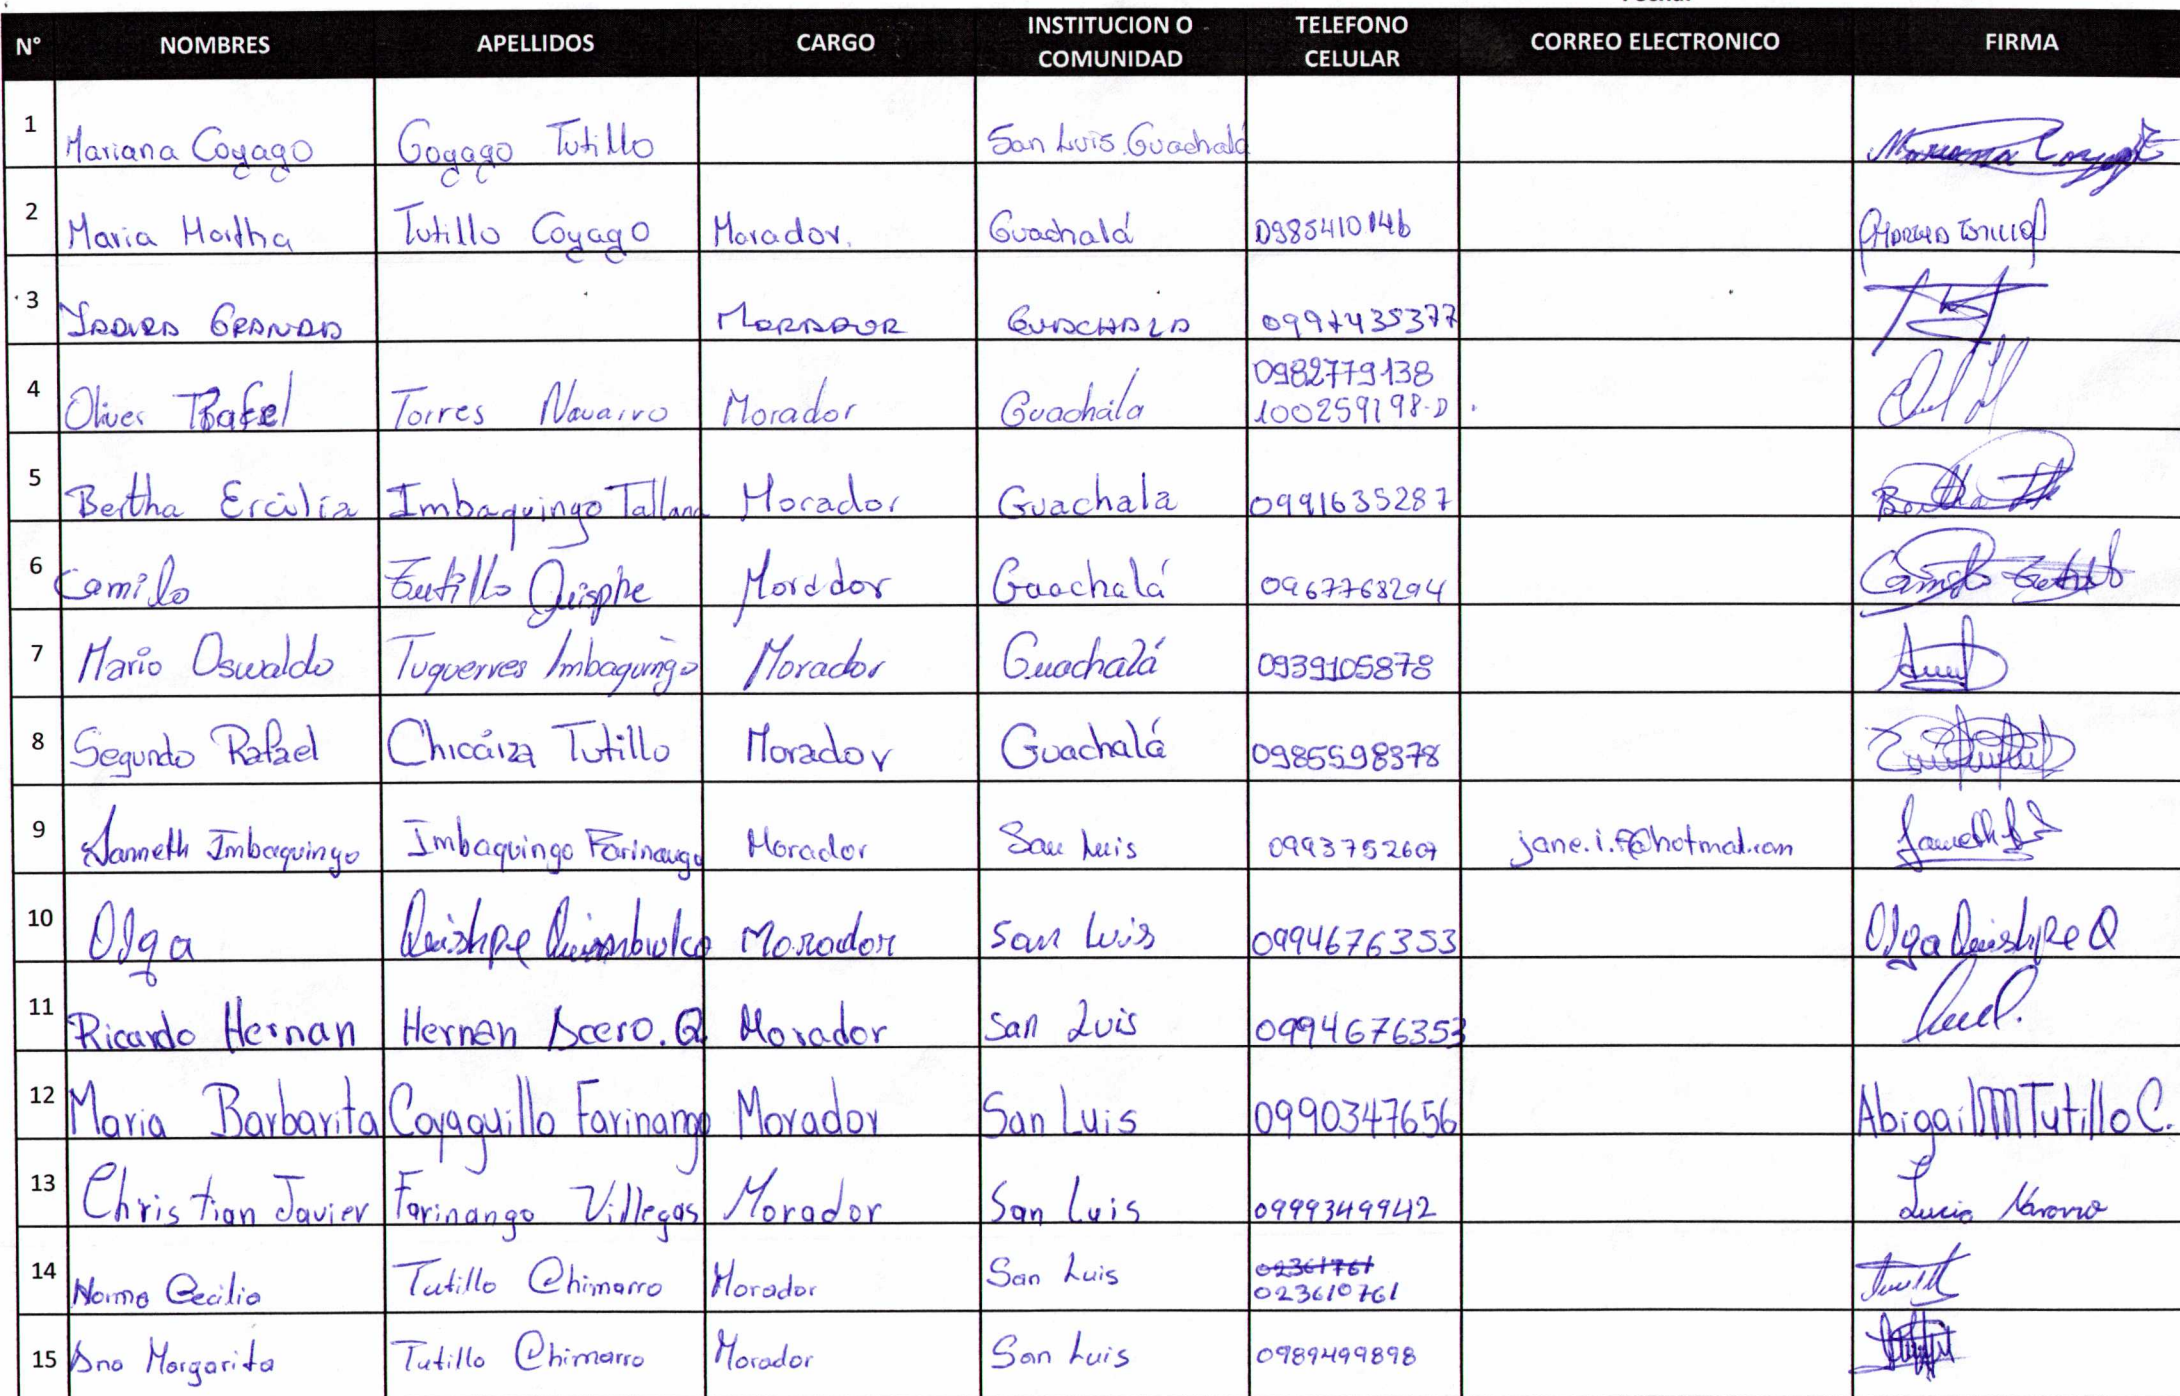 N° NOMBRES APELLIDOS CARGO INSTITUCION O COMUNIDAD TELEFONO CELULAR CORREO ELECTRONICO FIRMA
1 Mariana Coyago Coyago Tutillo San Luis Guachalá
2 Maria Martha Tutillo Coyago Morador. Guachalá 0985410146
3 GRANDA MORADOR GUACHALA 0997435377
4 Oliver Rafael Torres Navarro Morador Guachála 0982779138
100259198-0
5 Bertha Ercilia Imbaquingo Morador Guachala 0991635287
6 Camilo Tutillo Quisphe Morador Guachalá 0967768294 Camilo Tutillo
7 Mario Oswaldo Tuquerres Imbaquingo Morador Guachalá 0939105878
8 Segundo Rafael Chicáiza Tutillo Morador Guachalá 0985598378
9 Janneth Imbaquingo Imbaquingo Farinango Morador San Luis 0993752607 jane.i.f@hotmail.com
10 Olga Quishpe Morador San Luis 0994676353 Olga Quishpe Q
11 Ricardo Hernan Hernan Acero.Q Morador San Luis 0994676353
12 Maria Barbarita Coyaguillo Farinango Morador San Luis 0990347656 Abigail M Tutillo C.
13 Christian Javier Farinango Villegas Morador San Luis 0999349942 Lucia Navarro
14 Norma Cecilia Tutillo Chimarro Morador San Luis 02361761
023610761
15 Ana Margarita Tutillo Chimarro Morador San Luis 0989499898